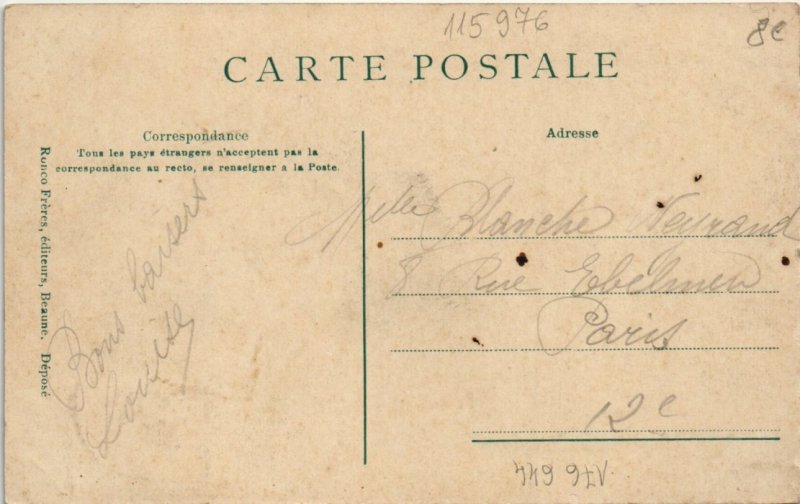 115976
8€
CARTE POSTALE
Correspondance
Tous les pays étrangers n'acceptent pas la
correspondance au recto, se renseigner a la Poste.
Ronco Frères, éditeurs, Beaune. Déposé
Bons baisers
Louise
Adresse
Melle Blanche Neyrand
8 Rue Ebelmen
Paris
12e